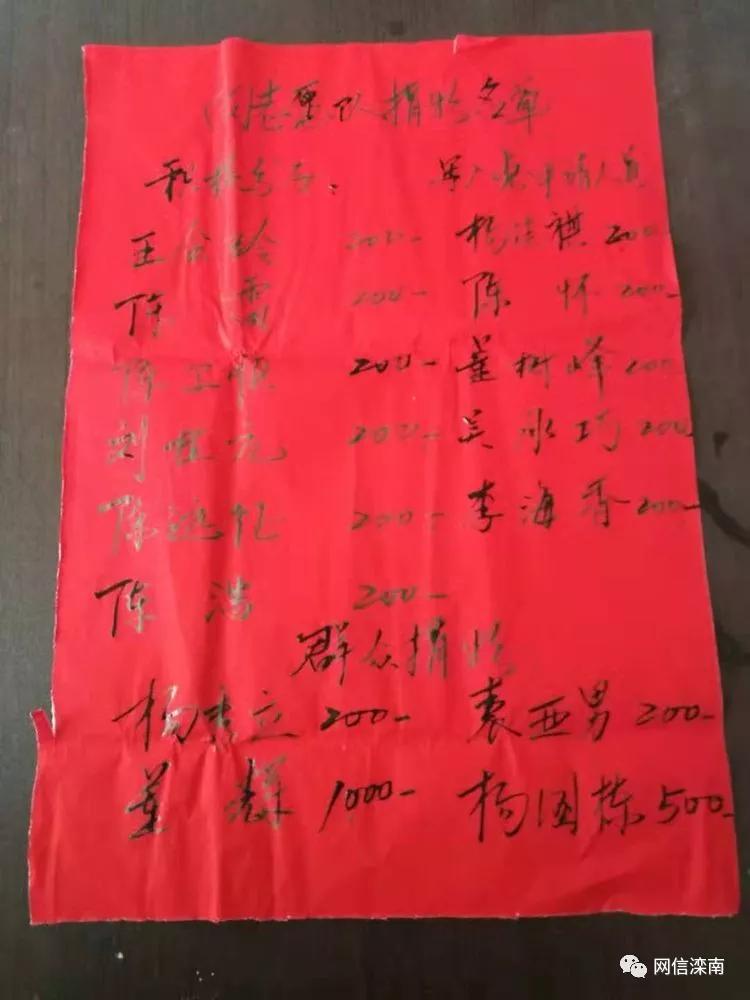 志愿队捐款名单
积极分子: 写入党申请人员
王会玲 200- 杨洪祺 200-
陈雷 200- 陈怀 200-
陈卫顺 200- 董树峰 200-
刘世元 200- 吴永巧 200-
陈 200- 李海香 200-
陈浩 200-
群众捐款
杨吉立 200- 袁亚男 200-
董辉 1000- 杨国栋 500-
网信滦南